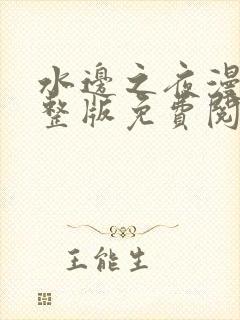 水邊之夜漫
整版免費閱
王能生